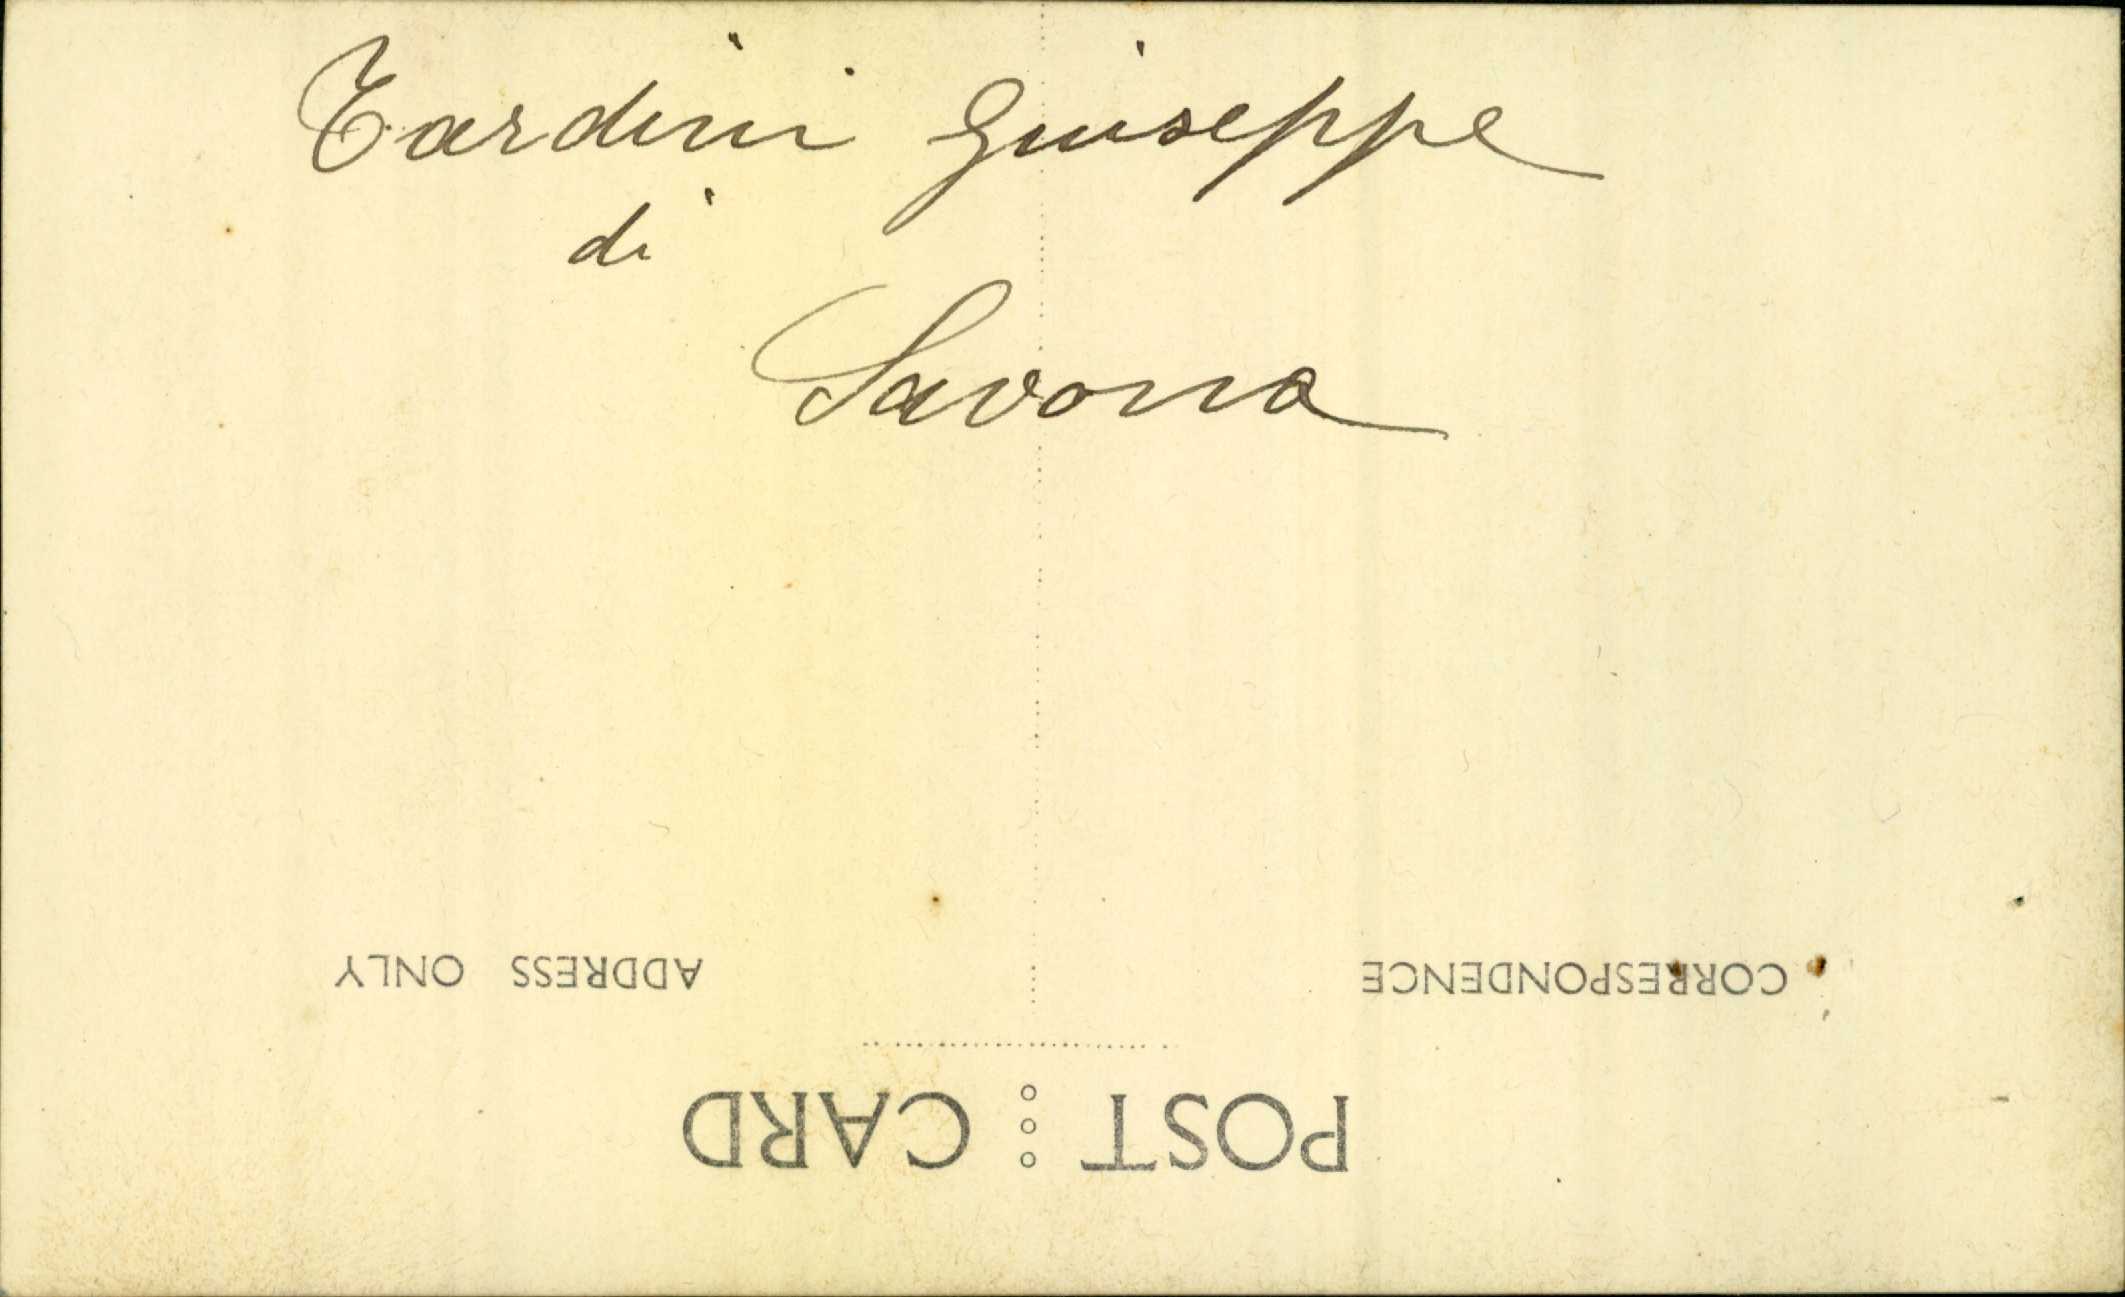 Tardini Giuseppe
di
Savona
ADDRESS ONLY
CORRESPONDENCE
POST CARD